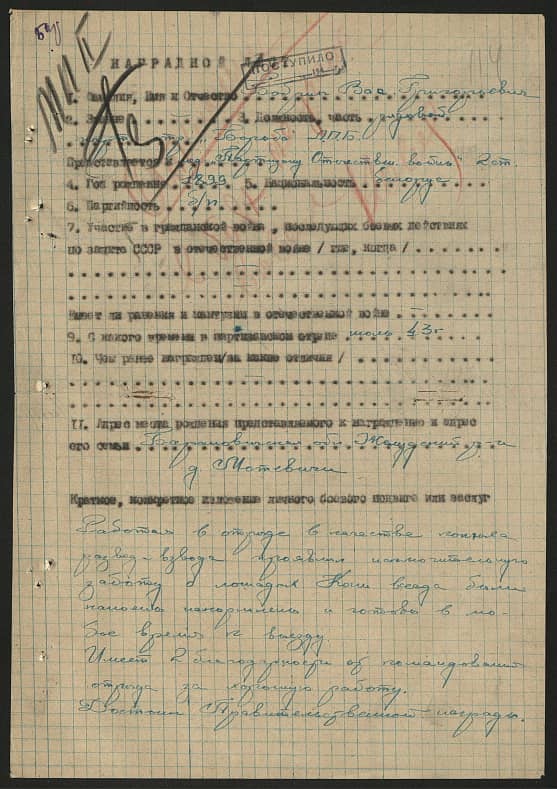 НАГРАДНОЙ
ПОСТУПИЛО
1. Фамилия, Имя и Отчество Бобрик Вас Григорьевич
2. Звание 3. Должность, часть рядовой
"Борьба"
Представляется к мед. "Партизану Отечествен. войны" 2 ст.
4. Год рождения 1899 5. Национальность белорус
6. Партийность б/п
7. Участие в гражданской войне, последующих боевых действиях
по защите СССР в отечественной войне / где, когда /
Имеет ли ранения и контузии в отечественной войне -
9. С какого времени в партизанском отряде июль 43 г
10. Чем ранее награжден/за какие отличия /
11. Адрес места рождения представляемого к награждению и адрес
его семьи Барановичская обл
д.
Краткое, конкретное изложение личного боевого подвига или заслуг
Работая в отряде в качестве конюха
развед-взвода проявил исключительную
заботу о лошадях Кони всегда были
напоены накормлены и готовы в лю-
бое время к выезду.
Имеет 2 благодарности от командования
отряда за хорошую работу.
Достоин Правительственной награды.